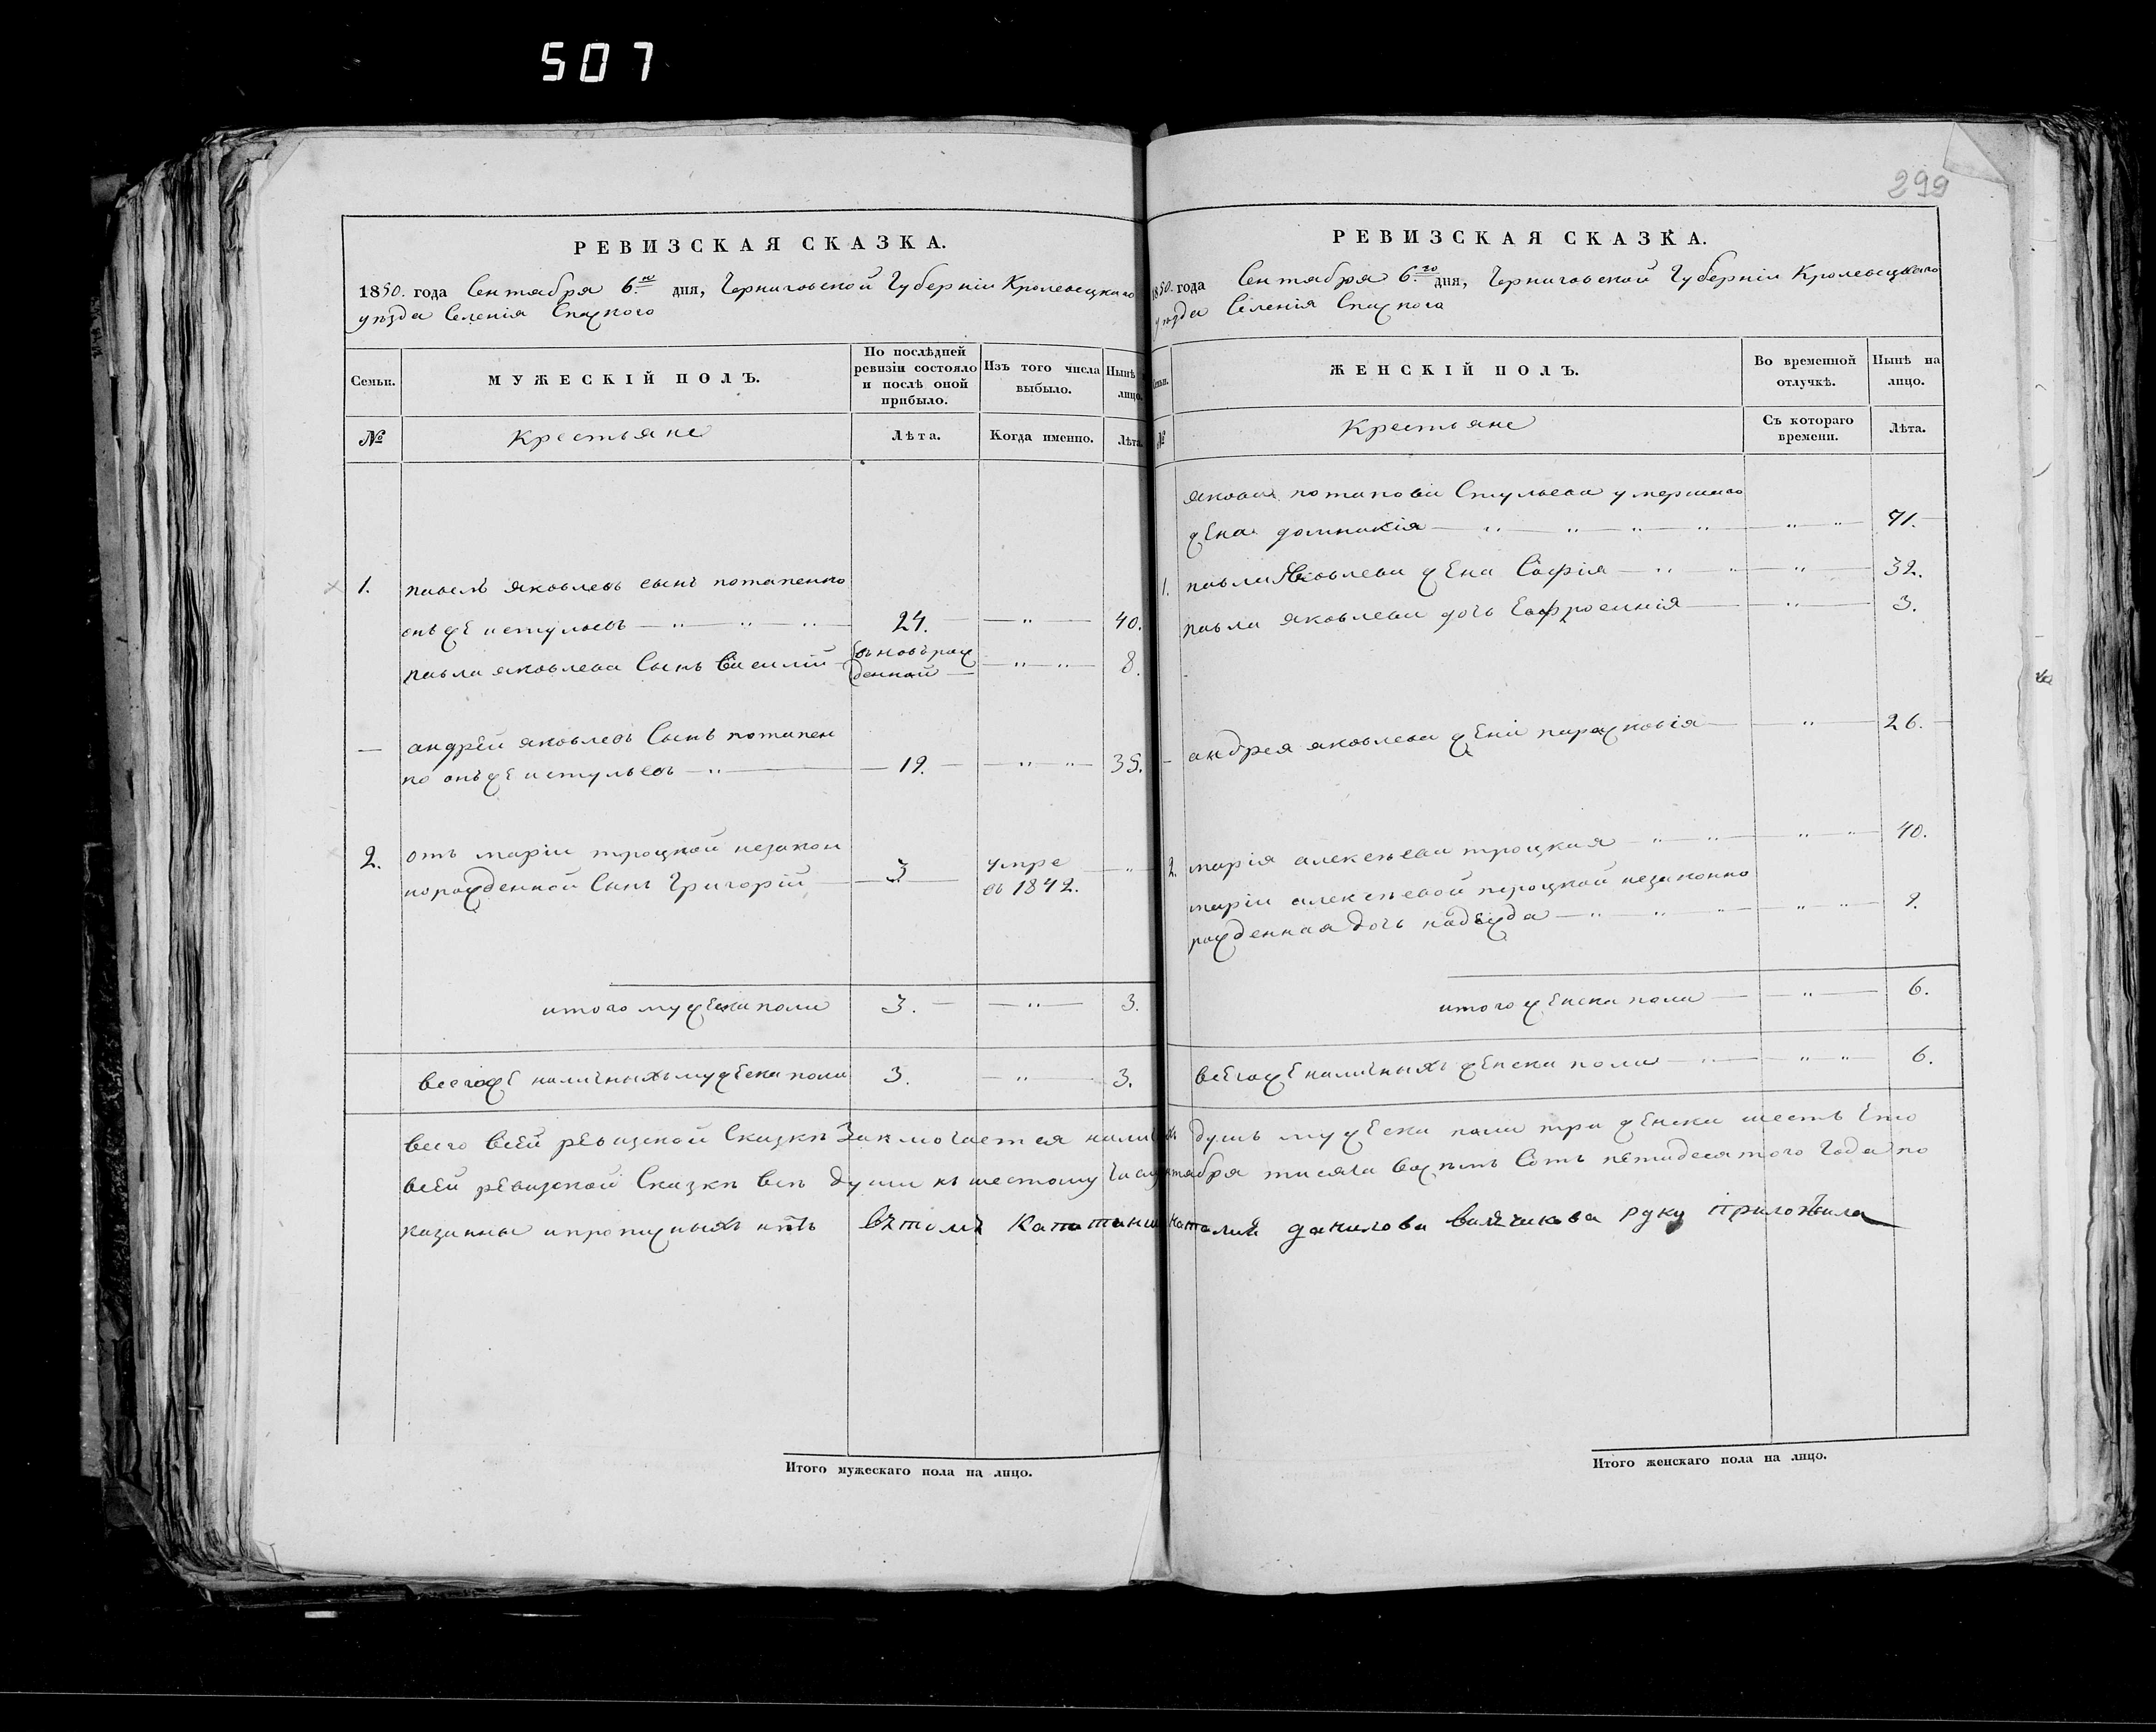 507
299
РЕВИЗСКАЯ СКАЗКА.
1850. года Сентября 6.го дня, Черниговской Губерніи Кролевецкаго
уѣзда Селенія Спаского
Семьи.
МУЖЕСКІЙ ПОЛЪ.
По послѣдней ревизіи состояло и послѣ оной прибыло.
Изъ того числа выбыло.
Нынѣ лицо.
№
Крестьяне
Лѣта.
Когда именно.
Лѣта.
1. павелъ яковлевъ сынъ потапенко
онъ же и стульевъ 24. 40.
павла яковлева Сынъ Василій 8.
андрей яковлевъ Сынъ потапен
ко онъ же и стульевъ 19. 35.
2. отъ маріи троцкой незакон
норожденной Сынъ Григорій 3 умре въ 1842.
итого мужеска пола 3. 3.
всего же наличныхъ мужеска пола 3. 3.
РЕВИЗСКАЯ СКАЗКА.
1850. года Сентября 6.го дня, Черниговской Губерніи Кролевецкаго
уѣзда Селенія Спаского
ЖЕНСКІЙ ПОЛЪ.
Во временной отлучкѣ.
Нынѣ на лицо.
№
Крестьяне
Съ котораго времени.
Лѣта.
якова потапова Стульева умершаго
жена домникія 71.
1. павла Яковлева жена Софія 32.
павла яковлева дочь Евфросинія 3.
андрея яковлева жена парасковія 26.
2. марія алексѣева троцкая 40.
маріи алексѣевой троцкой незаконно
рожденная дочь надежда 2.
итого женска пола 6.
всего же наличныхъ женска пола 6.
всего въ сей ревизской Сказкѣ Заключается душъ мужеска пола три женска шесть Что
въ сей ревизской Сказкѣ всѣ души къ шестому тисяча восѣмъ Сотъ пятидесятого Года по
казанны и пропускныхъ нѣтъ вътомъ данилова руку приложила
Итого мужескаго пола на лицо.
Итого женскаго пола на лицо.